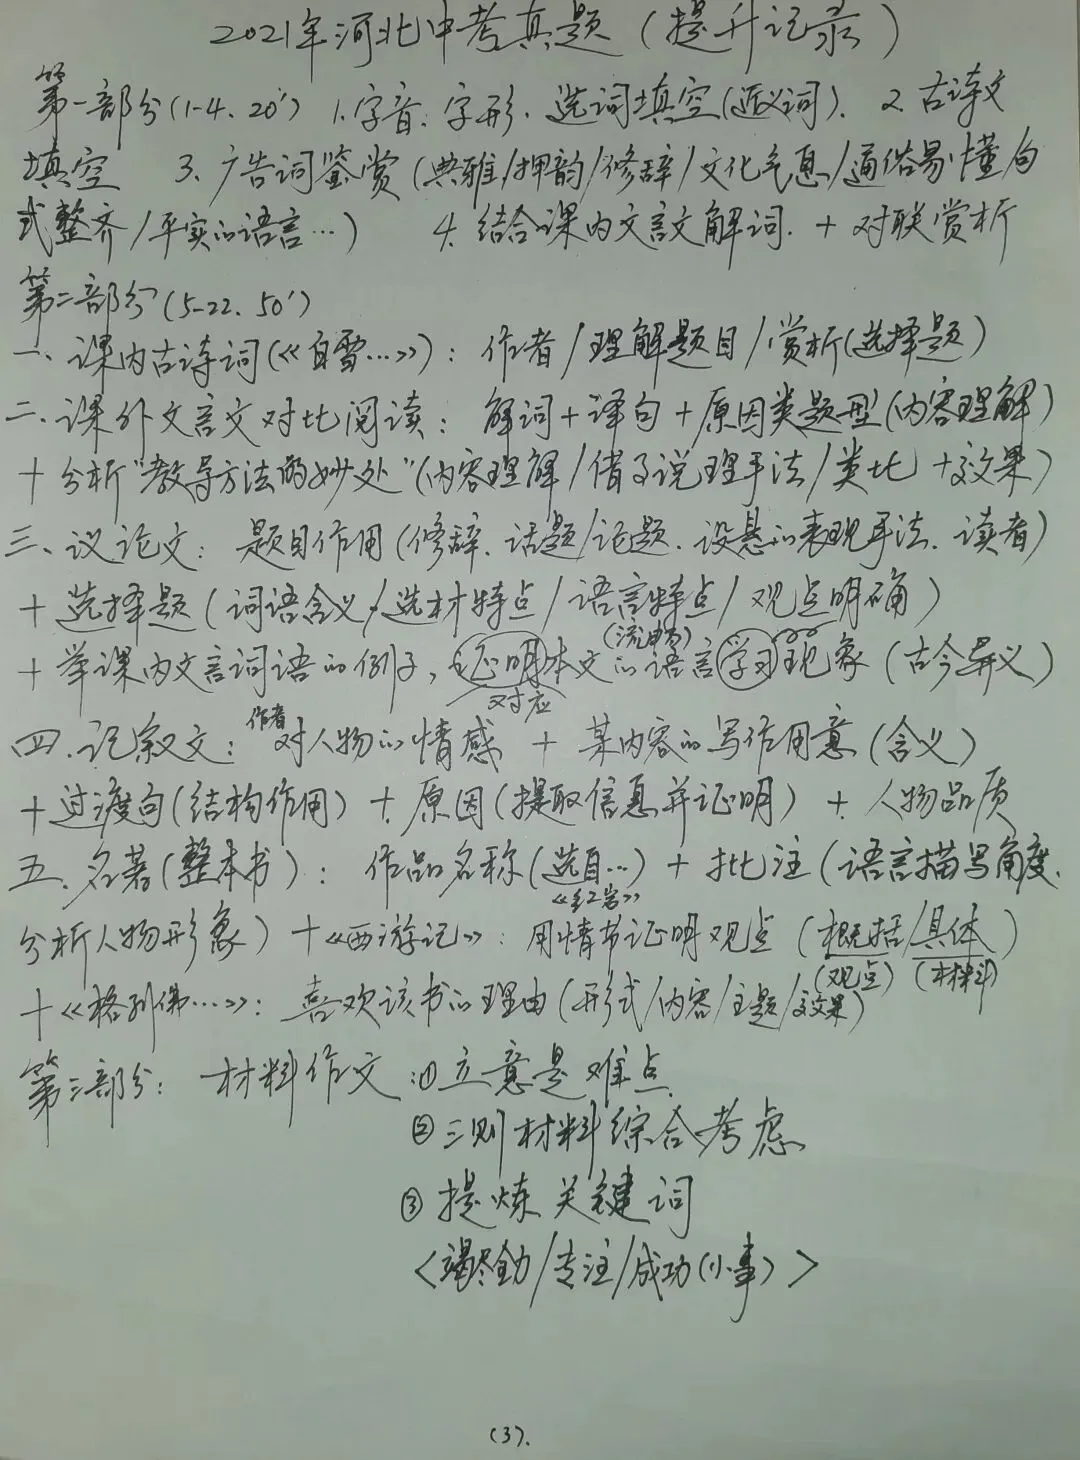 2021年河北中考真题（提升记录）
第一部分(1-4. 20′) 1.字音、字形、选词填空(近义词)、 2.古诗文
填空 3、广告词鉴赏(典雅/押韵/修辞/文化气息/通俗易懂/句
式整齐/平实的语言…) 4.结合课内文言文解词. + 对联赏析
第二部分(5-22. 50′)
一、课内古诗词(《白雪…》): 作者/理解题目/赏析(选择题)
二、课外文言文对比阅读: 解词+译句+原因类题型(内容理解)
+ 分析"教导方法的妙处"(内容理解/借事说理手法/类比 + 效果)
三、议论文: 题目作用(修辞、话题/论题、设悬的表现手法、读者)
+ 选择题(词语含义/选材特点/语言特点/观点明确)
(流畅)
+ 举课内文言词语的例子, 证明本文的语言学习现象(古今异义)
对应
四、记叙文: 作者对人物的情感 + 某内容的写作用意(含义)
+ 过渡句(结构作用) + 原因(提取信息并证明) + 人物品质
五、名著(整本书): 作品名称(选自…) + 批注(语言描写角度、
《红岩》
分析人物形象) +《西游记》: 用情节证明观点(概括/具体)
(观点) (材料)
+《格列佛…》: 喜欢该书的理由(形式/内容/主题/效果)
第三部分: 材料作文: ①立意是难点
②三则材料综合考虑
③提炼关键词
<竭尽全力/专注/成功(小事)>
(3).